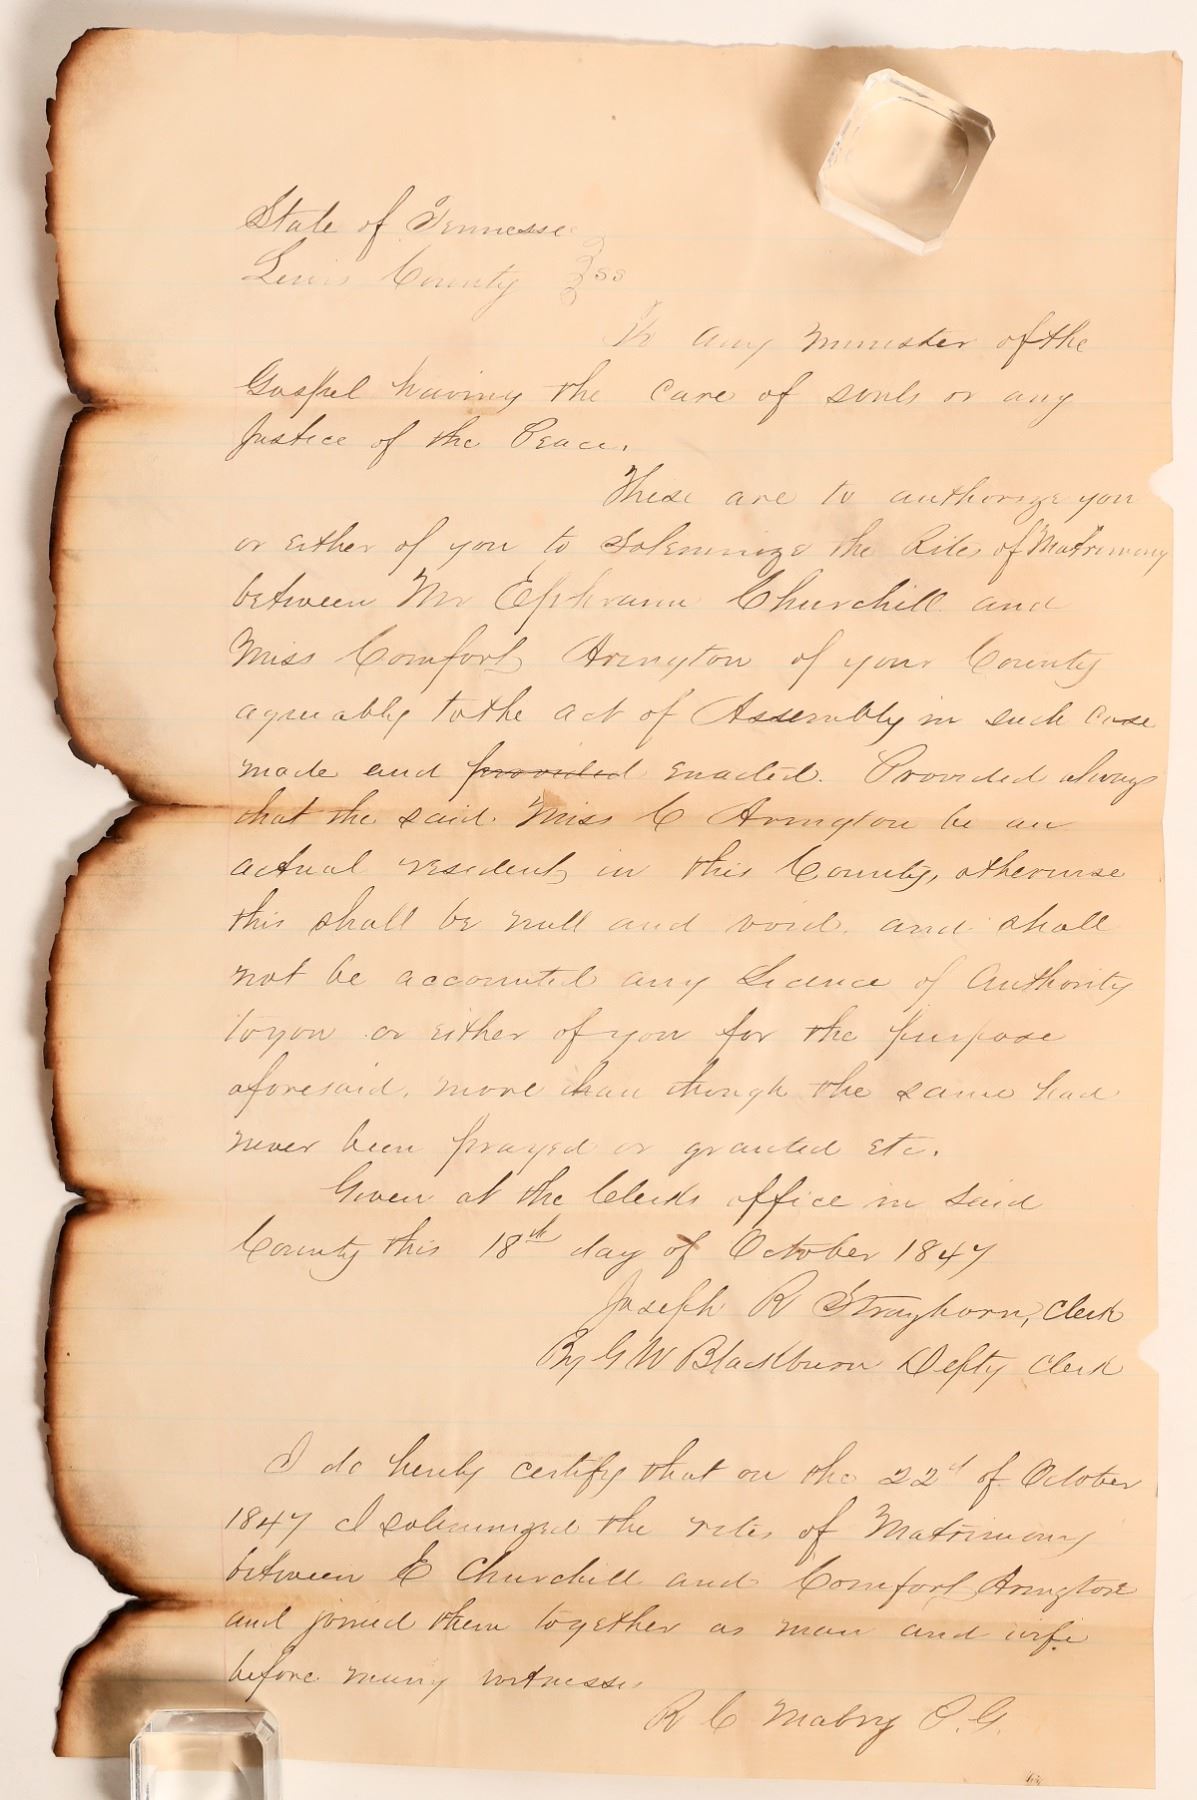 State of Tennessee
Lewis County } ss
To any Minister of the
Gospel having the care of souls or any
Justice of the Peace.
These are to authorize you
or either of you to solemnize the Rite of Matrimony
between Mr Ephraim Churchill and
Miss Comfort Arington of your County
agreeably to the act of Assembly in such case
made and provided enacted. Provided always
that the said Miss C Arington be an
actual resident in this County, otherwise
this shall be null and void and shall
not be accounted any Licence of Authority
to you or either of you for the purpose
aforesaid, more than though the same had
never been prayed or granted etc.
Given at the Clerks office in said
County this 18th day of October 1847
Joseph R Strayhorn, Clerk
By G W Blackburn Depty Clerk
I do hereby certify that on the 22d of October
1847 I solemnized the rites of Matrimony
between E Churchill and Comfort Arington
and joined them together as man and wife
before many witnesses
R C Mabry